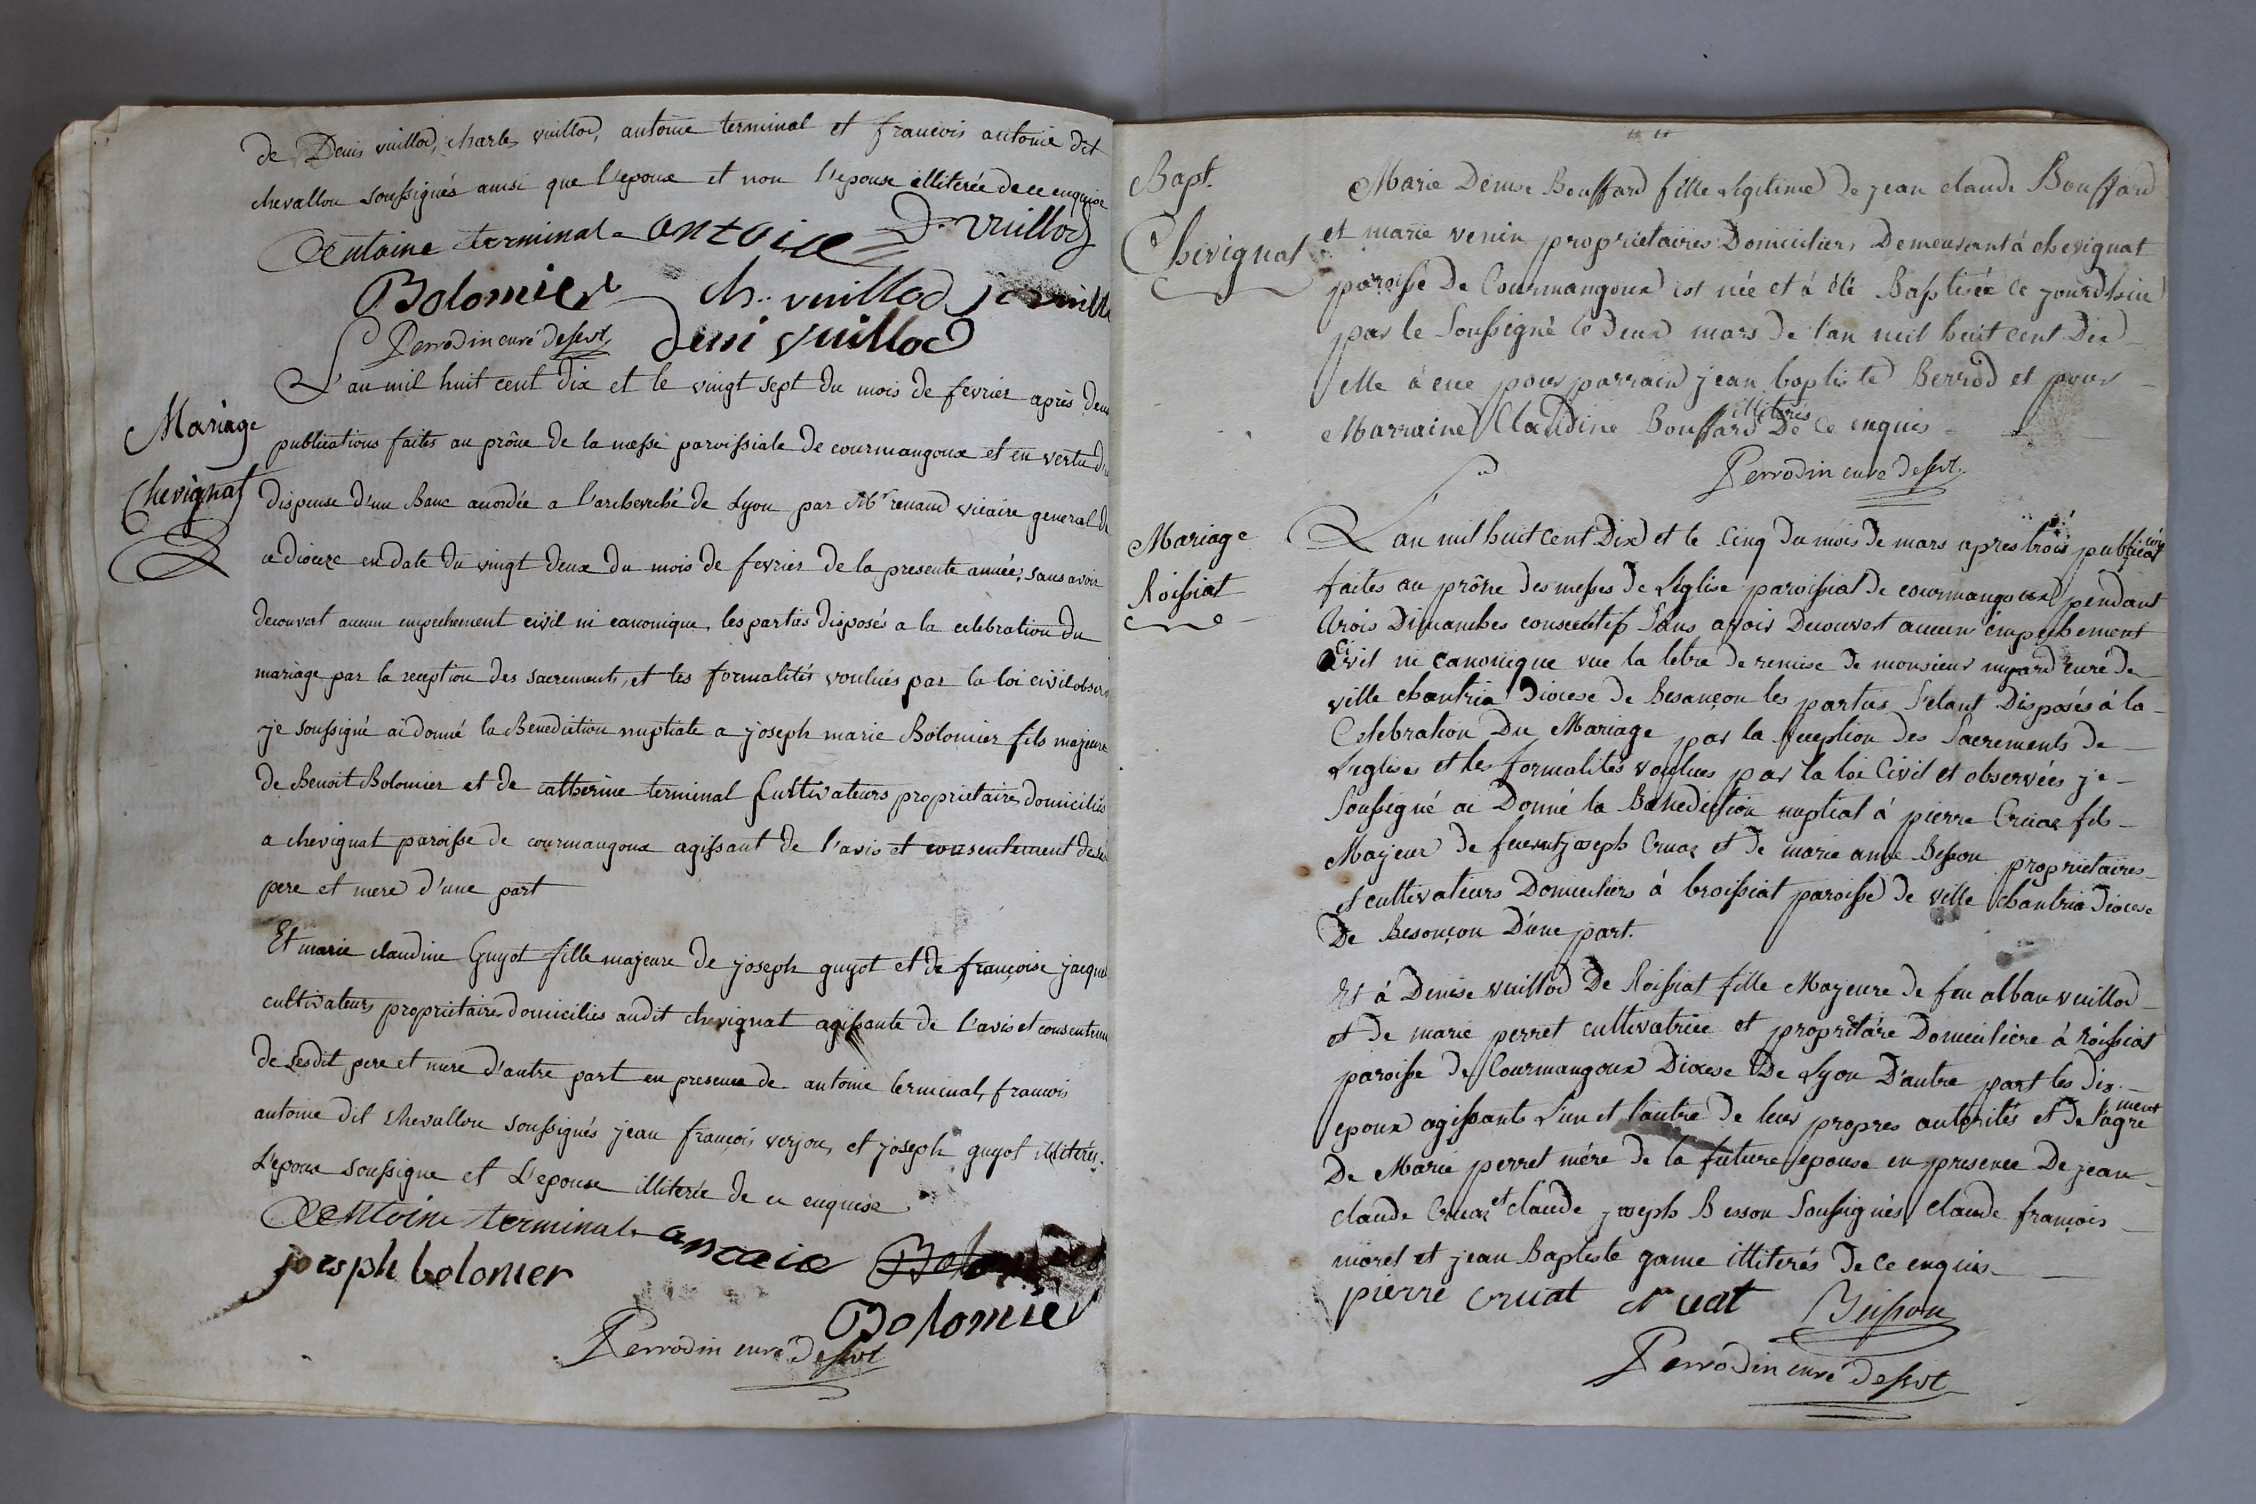 de Denis vuillod, charles vuillod, antoine terminal et francois antoine dit
chevallon soussignés ainsi que l'epoux et non l'epouse illiterée de ce enquise
Antoine terminal antoine D. vuillod
Bolomier ch. vuillod
Perrodin curé desservt. deni vuillod
Mariage
Chevignat
L'an mil huit cent dix et le vingt sept du mois de fevrier après deux
publications faites au prône de la messe paroissiale de courmangoux et en vertu de
dispense d'un Banc accordée a l'archevêché de Lyon par Mr renaud vicaire general de
ce dioceze en date du vingt deux du mois de fevrier de la presente année, sans avoir
decouvert aucun empechement civil ni canonique, les parties disposés a la celebration du
mariage par la reception des sacrements, et les formalités voulues par la loi civil
je soussigné ai donné la Benediction nuptiale a joseph marie Bolomier fils majeure
de Benoit Bolomier et de catherine terminal Cultivateurs proprietaires domiciliés
a chevignat paroisse de courmangoux agissant de l'avis et consentement de ses
pere et mere d'une part
Et marie claudine Guyot fille majeure de joseph guyot et de françoise
cultivateurs proprietaires domicilies audit chevignat agissante de l'avis et
de sesdit pere et mere d'autre part en presence de antoine terminal, francois
antoine dit chevallon soussignés jean françois verjon, et joseph guyot illiterés.
L'epoux soussigne et L'epouse illiterée de ce enquise
Antoine terminal
joesph bolomier
Bolomier
Perrodin curé desservt
Bapt.
Chevignat
Marie Denise Bouffard fille legitime de jean claude Bouffard
et marie venin proprietaires Domiciliers Demeurant à chevignat
paroisse De Courmangoux est née et à été Baptisée ce jourdhui
par le Soussigné le deux mars de l'an mil huit cent Dix
elle à eue pour parrain jean baptiste Berrod et pour
illiterés
Marraine Claudine Bouffard De ce enquis
Perrodin curé desservt.
Mariage
Roissiat
L'an mil huit cent Dix et le Cinq du mois de mars apres trois publications
faites au prône des messes de L'eglise paroissial de courmangoux pendant
trois Dimanches consecutifs Sans avoir Decouvert aucun empechement
civil ni canonique vue la letre de remise de monsieur curé de
ville chantria Diocese de Besançon les parties S'etant Disposés à la
Celebration Du Mariage par la reception des Sacrements de
L'eglises et les formalités voulues par la loi Civil et observées je
Soussigné ai Donné la Benediction nuptial à pierre Cruaz fils
Majeur de joseph Cruaz et de marie anne Besson proprietaires
et cultivateurs Domiciliers à broissiat paroisse de ville chantria Diocese
De Besonçon D'une part.
Et à Denise vuillod De Roissiat fille Majeure de feu alban vuillod
et de marie perret cultivatrice et propriétáre Domicilière à roissiat
paroisse de Courmangoux Diocese De Lyon D'autre part les dix
epoux agissants L'un et l'autre de leur propres autorités et de l'agrement
De Marie perret mére de la future epouse en presence De jean
claude Cruaz et claude joseph Besson Soussignés, claude françois
morel et jean Baptiste game illiterés de ce enquis
pierre cruat Beisson
Perrodin curé desservt